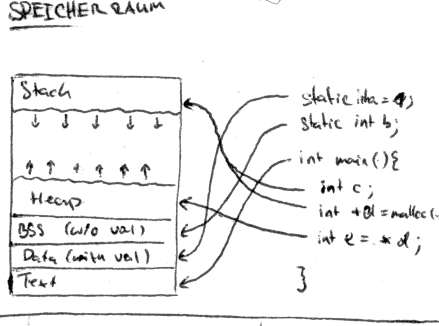 SPEICHERRAUM
Stack
Heap
BSS (w/o val)
Data (with val)
Text
static int a = 4;
static int b;
int main(){
int c;
int *d = malloc(
int e = *d;
}